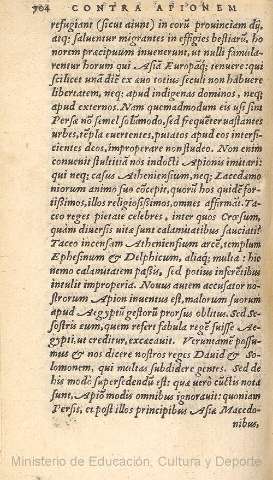 704 CONTRA APIONEM
refugiant (sicut aiunt) in eorũ prouinciam dũ,
atq; saluentur migrantes in effigies bestiarũ, ho
norem præcipuum inuenerunt, ut nulli famula-
rentur horum qui Asiã Europãq; tenuere: qui
scilicet unã diẽ ex ãuo totius seculi non habuere
libertatem, neq; apud indigenas dominos, neq;
apud externos. Nam quemadmodum eis usi sint
Persæ nõ semel solũmodo, sed frequẽter uastantes
urbes, tẽpla euertentes, putatos apud eos interfi-
cientes deos, improperare non studeo. Non enim
conuenit stultitiã nos indocti Apionis imitari:
qui neq; casus Atheniensium, neq; Lacedæmo
niorum animo suo cõcepit, quorũ hos quidẽ for-
tissimos, illos religiosissimos, omnes affirmãt. Ta-
ceo reges pietate celebres, inter quos Crœsum,
quàm diuersis uitæ sunt calamitatibus sauciati?
Taceo incensam Atheniensium arcẽ, templum
Ephesinum & Delphicum, aliaq; multa: hic
nemo calamitatem passis, sed potius inferẽtibus
intulit improperia. Nouus autem accusator no-
strorum Apion inuentus est, malorum suorum
apud Aegyptũ gestorũ prorsus oblitus. Sed Se-
sostris eum, quem refert fabula regẽ fuisse Ae-
gypti, ut creditur, excæcauit. Veruntamẽ possu-
mus & nos dicere nostros reges Dauid & So-
lomonem, qui multas subdidere gentes. Sed de
his modò supersedendũ est: quæ uerò cũctis nota
sunt, Apiõ modis omnibus ignorauit: quoniam
Persis, et post illos principibus Asiæ Macedo-
nibus,
Ministerio de Educación, Cultura y Deporte